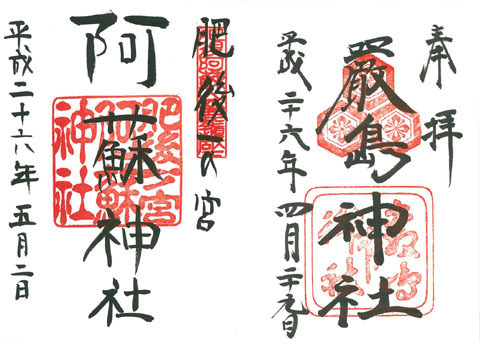 奉拝
嚴島神社
平成二十六年四月二十九日
肥後一の宮
阿蘇神社
平成二十六年五月二日
肥後一宮
阿蘇
神社